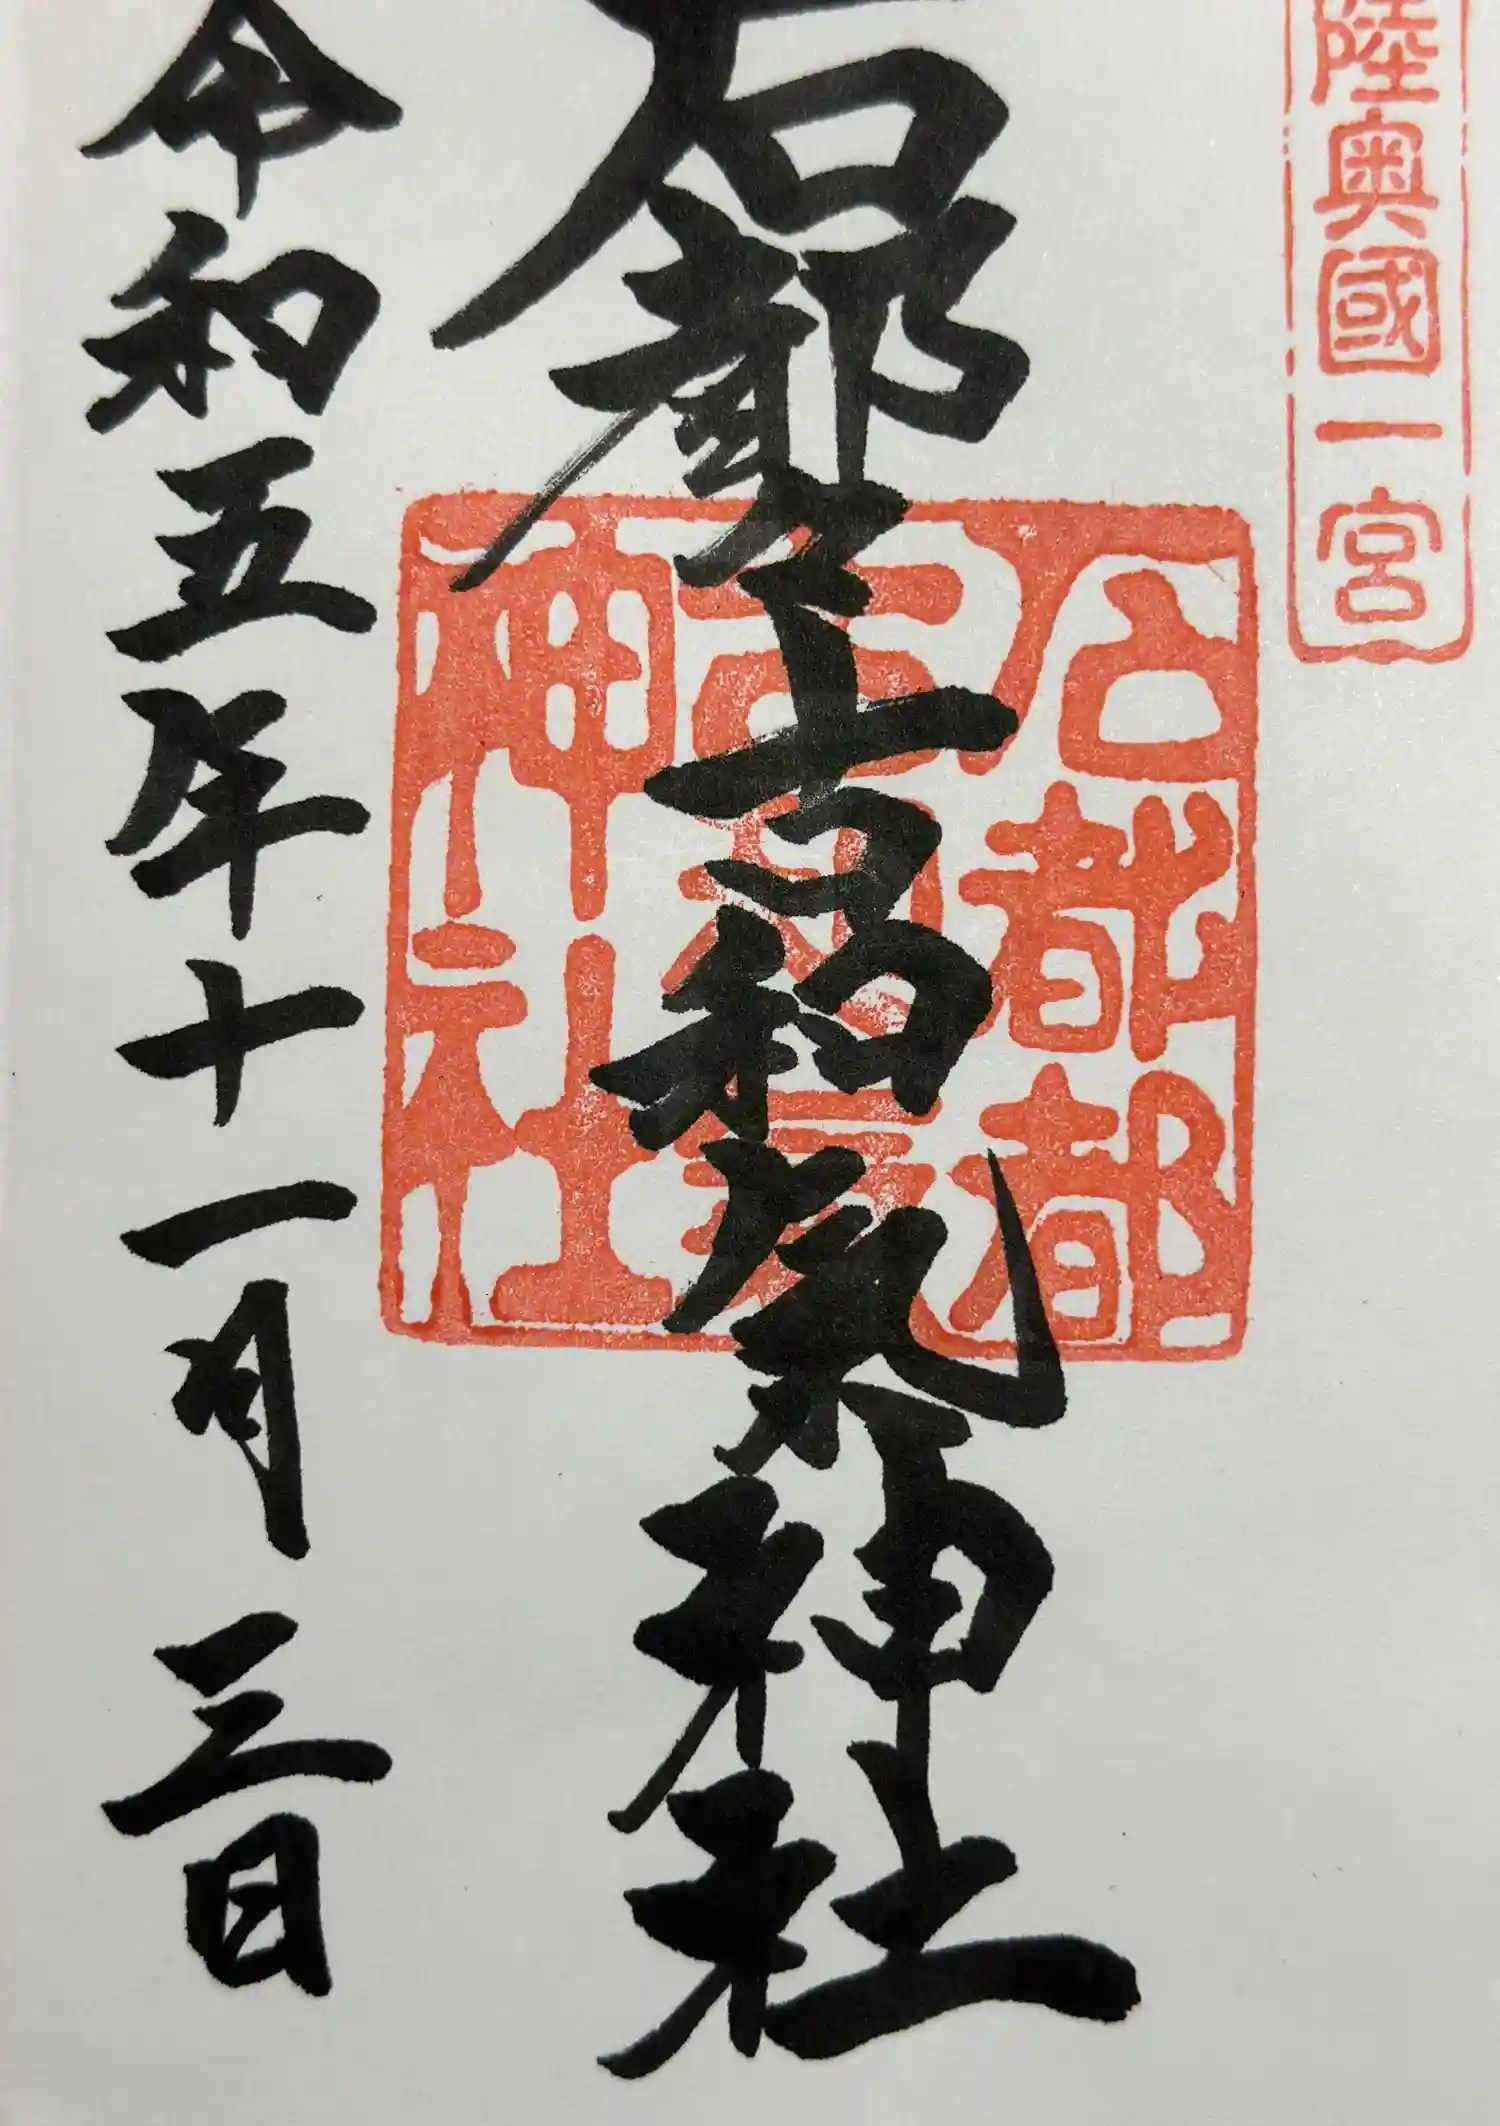 陸奥國一宮
石都々古和氣神社
石都都
古和氣
神社
令和五年十一月三日